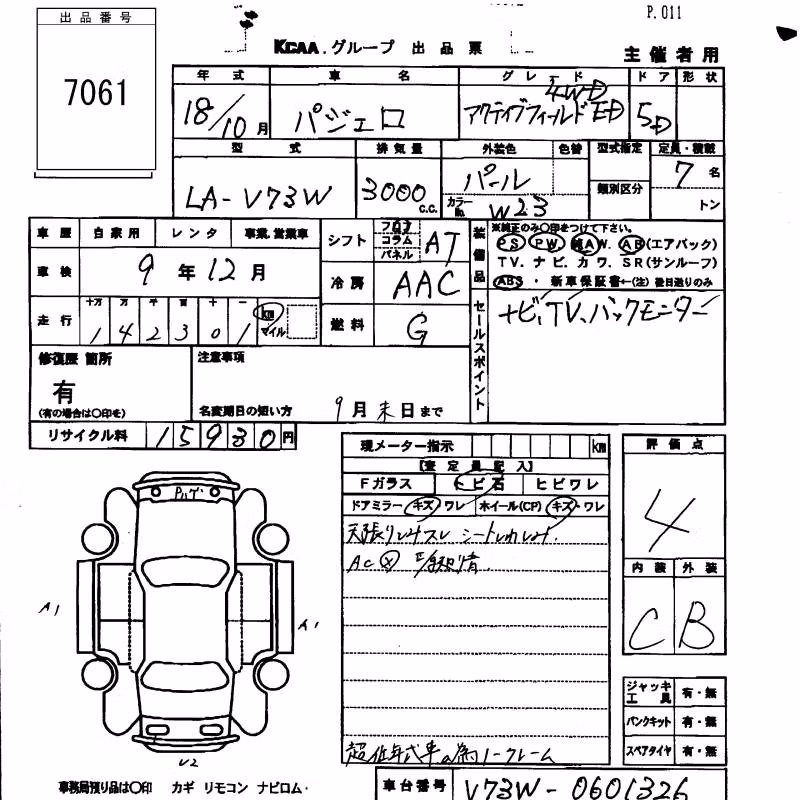 P.011
出品番号
7061
KCAA.グループ 出品票
主催者用
年式 車名 グレード ドア 形状
18/10月 パジェロ アクティブフィールドED 4WD 5D
型式 排気量 外装色 色替 型式指定 定員・積載
LA-V73W 3000 C.C. パール 7名
類別区分
カラーNo. W23 トン
車歴 自家用 レンタ 事業.営業車
シフト フロア コラム パネル AT
装備品 ※純正のみ○印をつけて下さい。
PS PW AW. AB(エアバック)
TV. ナビ. カワ. SR(サンルーフ)
ABS・新車保証書←(注)後日送りのみ
車検 9年12月
冷房 AAC
走行 十万 万 千 百 十 一
142301 km マイル
燃料 G
セールスポイント ナビ、TV、バックモニター
修復歴 箇所
有
(有の場合は○印を)
注意事項
名変期日の短い方 9月末日まで
リサイクル料 15930円
現メーター指示 km
【査定員記入】
Fガラス トビ石 ヒビワレ
ドアミラー キズ・ワレ ホイール(CP) キズ・ワレ
シートよれ
AC
評価点
4
内装 外装
C B
P.ハゲ
A1
A1
V2
ジャッキ工具 有・無
パンクキット 有・無
スペアタイヤ 有・無
超低年式車の為ノークレーム
事務局預り品は○印 カギ リモコン ナビロム・
車台番号 V73W-0601326